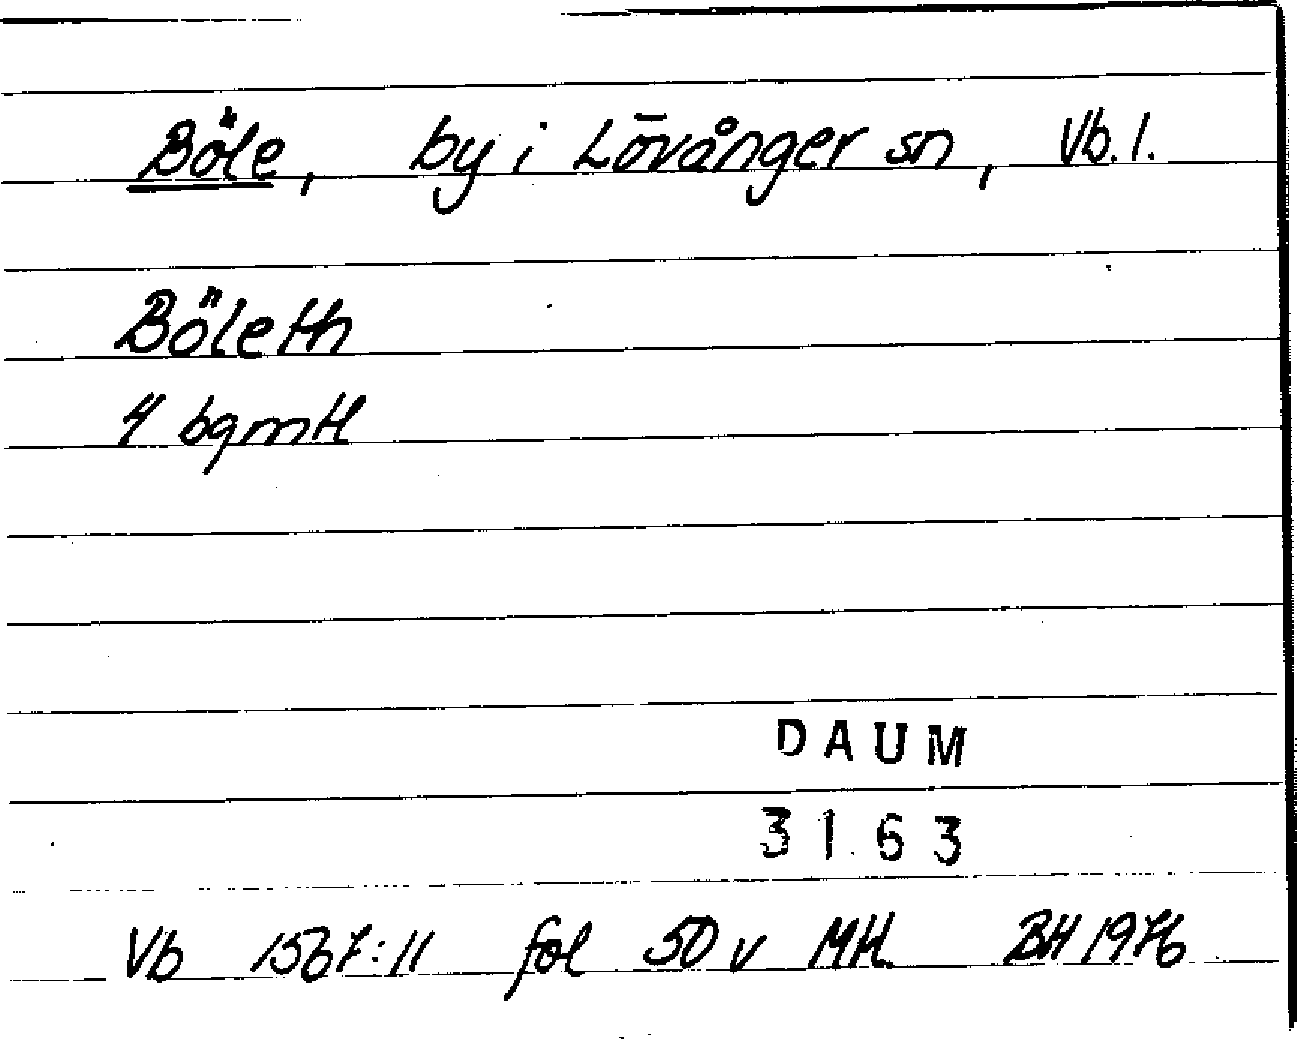 Böle, by i Lövånger sn, Vb. l.
Böleth
4 bgmtl
DAUM
3163
Vb 1567:11 fol 50 v MH. BH 1976